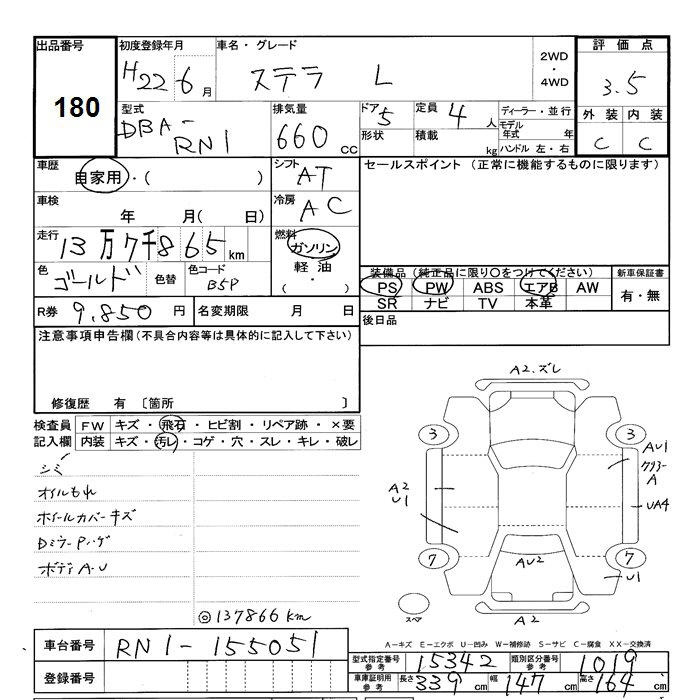 出品番号 初度登録年月 車名・グレード 2WD ・ 4WD 評価点
180 H22 6月 ステラ L 3.5
型式 排気量 ドア 定員 ディーラー・並行 外装 内装
DBA-RN1 660cc 5 4人 モデル年式 年 C C
形状 積載 kg ハンドル 左・右
車歴 自家用・( ) シフト AT セールスポイント (正常に機能するものに限ります)
車検 年 月( 日) 冷房 AC
走行 13万7千865km 燃料 ガソリン
軽油
( ・ )
色 ゴールド 色替 色コード B5P
装備品 (純正品に限り〇をつけてください) 新車保証書
PS PW ABS エアB AW 有・無
SR ナビ TV 本革
R券 9,850円 名変期限 月 日 後日品
注意事項申告欄(不具合内容等は具体的に記入して下さい)
修復歴 有 〔箇所 〕
検査員 FW キズ・飛石・ヒビ割・リペア跡・×要
記入欄 内装 キズ・汚レ・コゲ・穴・スレ・キレ・破レ
シミ
オイルもれ
ホイールカバーキズ
DミラーPハゲ
ボディA・U
◎137866km
A2.ズレ
3 3
AU1
A
A2
U1
UA4
7 7
AU2
U1
スペア
A2
A−キズ E−エクボ U−凹み W−補修跡 S−サビ C−腐食 XX−交換済
車台番号 RN1-155051
登録番号
型式指定番号 参考 15342 類別区分番号 参考 1019
車庫証明用 参考 長さ 339cm 幅 147cm 高さ 164cm